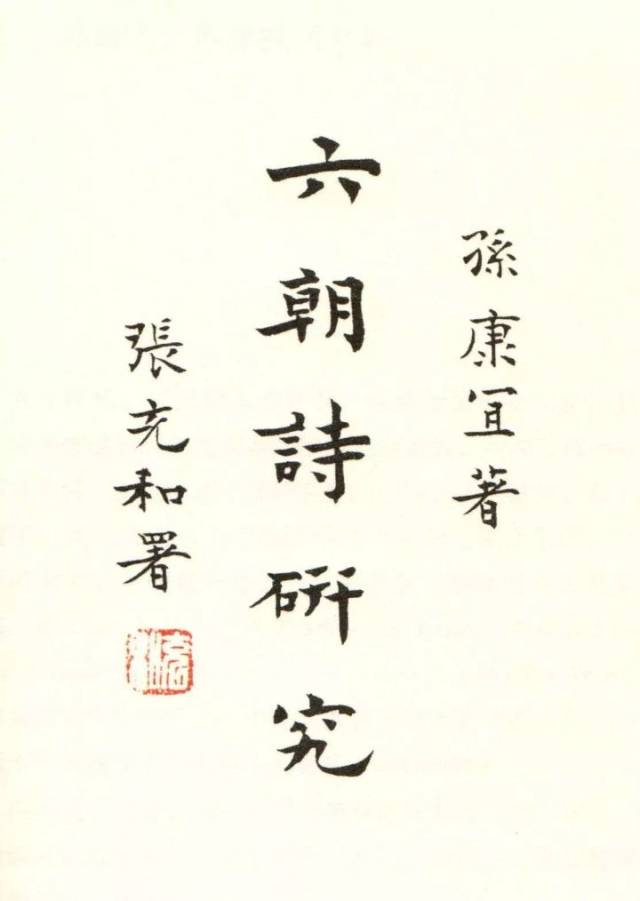 孫康宜著
六朝詩研究
張充和署